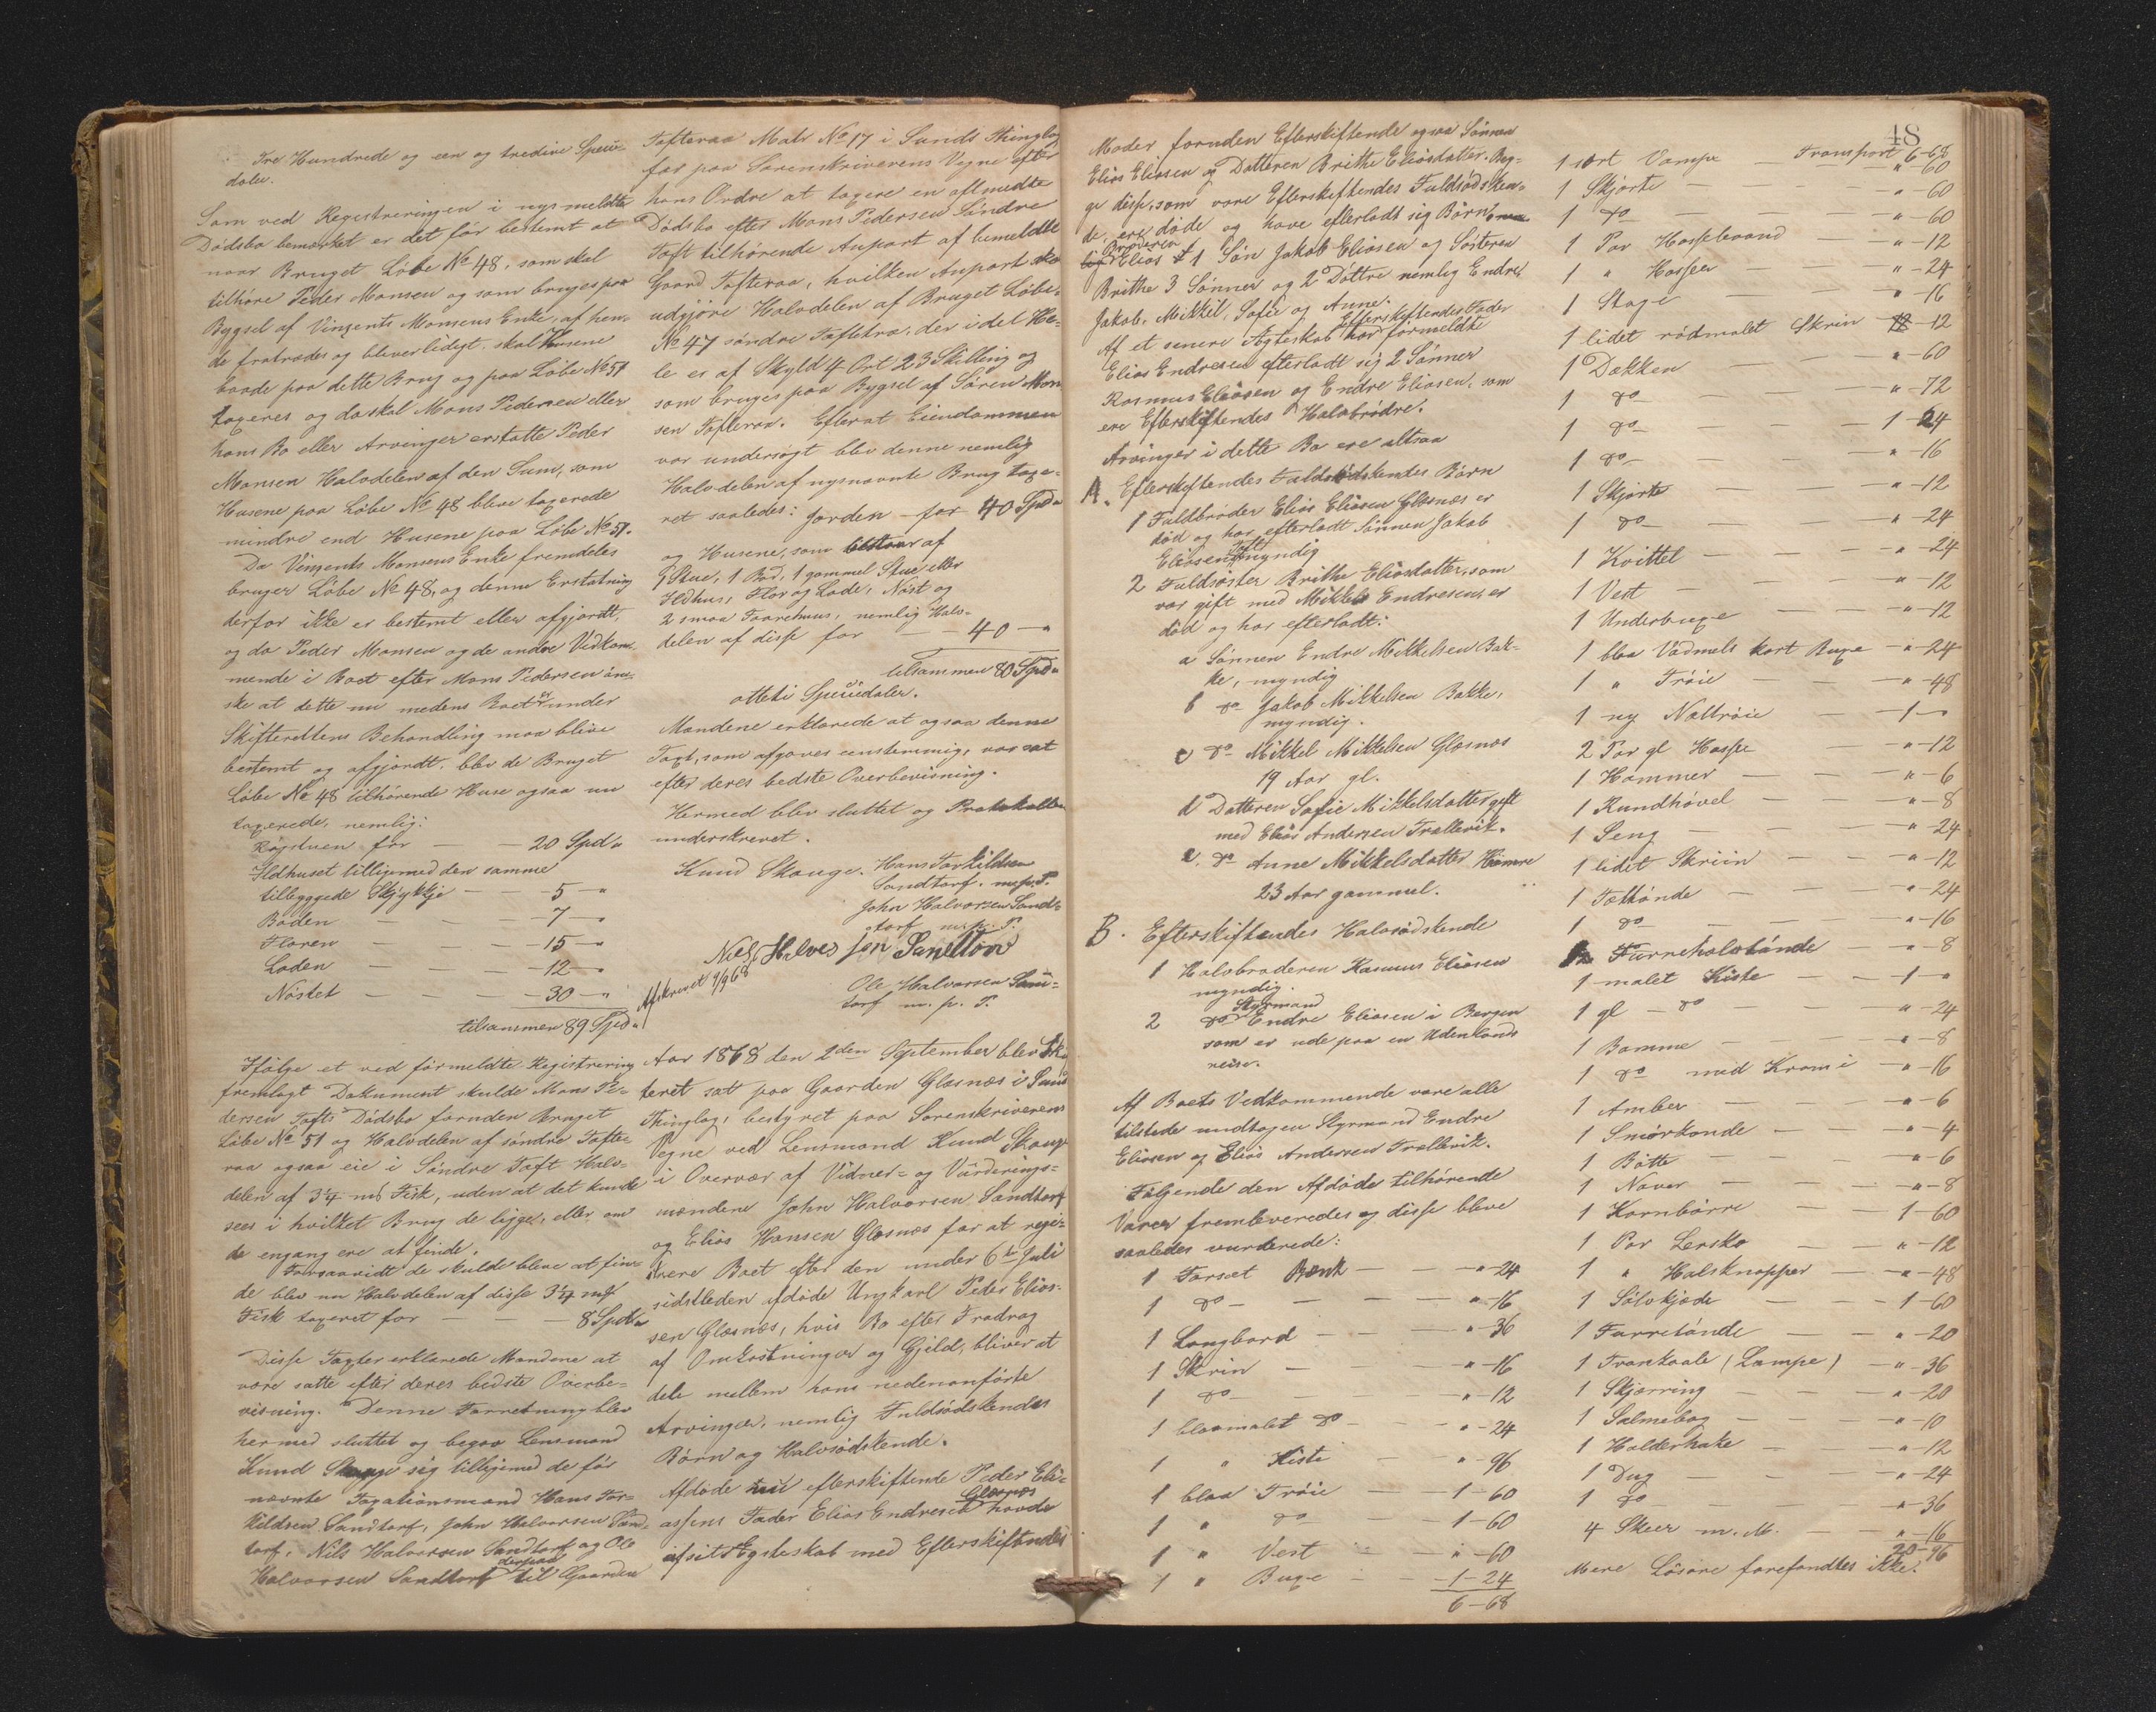 Tre Hundrede og een og tredive Specie-
daler.
Som ved Registreringen i nysmeldte
Dødsbo bemærket er det før bestemt at
naar Bruget Løbe No 48, som skal
tilhøre Peder Monsen og som bruges paa
Bygsel af Vinzents Monsens Enke, af hen-
de fratrædes og bliver ledigt, skal Husene
baade paa dette Brug og paa Løbe No 51
taxeres og da skal Mons Pedersen eller
hans Bo eller Arvinger erstatte Peder
Monsen Halvdelen af den Sum, som
Husene paa Løbe No 48 blive taxerede
mindre end Husene paa Løbe No 51.
Da Vinzents Monsens Enke fremdeles
bruger Løbe No 48, og denne Erstatning
derfor ikke er bestemt eller afgjordt,
og da Peder Monsen og de andre Vedkom-
mende i Boet efter Mons Pedersen øn-
ske at dette nu medens Boet er under
Skifterettens Behandling maa blive
bestemt og afgjordt, blev de Bruget
Løbe No 48 tilhørende Huse ogsaa nu
taxerede, nemlig:
Røgstuen for — — 20 Spd "
Ildhuset tilligemed den samme
tilbyggede Skykkje — — 5 — "
Boden — — — 7 — "
Floren — — — 15 — "
Laden — — — 12 — "
Nøstet — — — 30 — "
tilsammen 89 Spd "
Ifølge et ved førmeldte Registrering
fremlagt Dokument skulde Mons Pe-
dersen Tofts Dødsbo foruden Bruget
Løbe No 51 og Halvdelen af søndre Tofte-
raa ogsaa eie i Søndre Toft Halv-
delen af 3¼ mk Fisk, uden at det kunde
sees i hvilket Brug de ligge, eller om
de engang ere at finde.
Forsaavidt de skulde blive at fin-
de blev nu Halvdelen af disse 3¼ mk
Fisk taxeret for — — — 8 Spd "
Disse Taxter erklærede Mændene at
være satte efter deres bedste Overbe-
visning. Denne Forretning blev
hermed sluttet og begav Lensmand
Knud Skauge sig tilligemed de før
nævnte Taxationsmænd Hans Tor-
kildsen Sandtorf, John Halvorsen Sand-
torf, Nils Halvorsen Sandtorf og Ole
Halvorsen Sandtorf derpaa til Gaarden
Tofteraa Matr No 17 i Sunds Thinglag
for paa Sorenskriverens Vegne efter
hans Ordre at taxere en oftmeldte
Dødsbo efter Mons Pedersen Søndre
Toft tilhørende Anpart af bemeldte
Gaard Tofteraa, hvilken Anpart skal
udgjøre Halvdelen af Bruget Løbe-
No 47 søndre Toftetræ, der i det He-
le er af Skyld 4 Ort 23 Skilling og
som bruges paa Bygsel af Søren Mon
sen Tofteraa. Efterat Eiendommen
var undersøgt blev denne nemlig
Halvdelen af nysnævnte Brug taxe-
ret saaledes: Jorden for 40 Spd "
og Husene, som bestaar af
1 Stue, 1 Bod, 1 gammel Stue eller
Ildhus, Flor og Lade, Nøst og
2 smaa Faarehuus, nemlig Halv-
delen af disse for — — 40 — "
tilsammen 80 Spd "
otteti Speciedaler.
Mændene erklærede at ogsaa denne
Taxt, som afgaves eenstemmig, var sat
efter deres bedste Overbevisning.
Hermed blev sluttet og Protokollen
underskrevet.
Knud Skauge. Hans Torkildsen
Sandtorf. m. p. P.
John Halvorsen Sand-
torf m. p. P.
Niels Halvorsen Sandtorv
Ole Halvorsen Sand-
torf m. p. P.
Afskrevet 9/9 68
Aar 1868 den 2den September blev Skif
teret sat paa Gaarden Glæsnæs i Sund
Thinglag, bestyret paa Sorenskriverens
Vegne ved Lensmand Knud Skauge
i Overvær af Vidner- og Vurderings-
mændene John Halvorsen Sandtorf
og Elias Hansen Glæsnæs for at regi-
strere Boet efter den under 6te Juli
sidstleden afdøde Ungkarl Peder Elias-
sen Glæsnæs, hvis Bo efter Fradrag
af Omkostninger og Gjeld, bliver at
dele mellem hans nedenanførte
Arvinger, nemlig Fuldsødskendes
Børn og Halvsødskende.
Afdøde efterskiftende Peder Eli-
assens Fader Elias Endresen Glæsnæs havde
af sit Egteskab med Efterskiftendes
48
Moder foruden Efterskiftende ogsaa Sønnen
Elias Eliasen og Datteren Brithe Eliasdatter. Beg-
ge disse, som vare Efterskiftendes Fuldsødsken-
de, ere døde og have efterladt sig Børn,
Broderen Elias 1 Søn Jakob Eliasen og Søsteren
Brithe 3 Sønner og 2 Døttre nemlig Endre,
Jakob, Mikkel, Sofie og Anne.
Af et senere Ægteskab har Efterskiftendes Fader formeldte
Elias Endresen efterladt sig 2 Sønner
Rasmus Eliasen og Endre Eliasen, som
ere Efterskiftendes Halvbrødre.
Arvinger i dette Bo ere altsaa
A. Efterskiftendes Fuldsødskendes Børn
1 Fuldbroder Elias Eliasen Glæsnæs er
død og har efterladt Sønnen Jakob
Eliasen Toft myndig
2 Fuldsøster Brithe Eliasdatter, som
var gift med Mikkel Endresen, er
død og har efterladt:
a Sønnen Endre Mikkelsen Bak-
ke, myndig
b do Jakob Mikkelsen Bakke,
myndig.
c do Mikkel Mikkelsen Glæsnæs
19 Aar gl.
d Datteren Sofie Mikkelsdatter gift
med Elias Andersen Trællevik.
e. do Anne Mikkelsdatter Hamre
23 Aar gammel.
B. Efterskiftendes Halvsødskende
1 Halvbroderen Rasmus Eliasen
myndig.
2 do Styrmand Endre Eliasen i Bergen
som er ude paa en Udenlands
reise.
Af Boets Vedkommende vare alle
tilstede undtagen Styrmand Endre
Eliasen og Elias Andersen Trællevik.
Følgende den Afdøde tilhørende
Varer fremleveredes og disse bleve
saaledes vurderede:
1 Forsæt Bænk — — " - 24
1 do — — " - 16
1 Langbord — — " - 36
1 Skrin — — " - 16
1 do — — " - 12
1 blaamalet do — — " - 24
1 " Kiste — " - 96
1 blaa Trøie — 1 - 60
1 " do — 1 - 60
1 " Vest — " - 60
1 " Buxe — 1 - 24
6 - 68
Transport 6 - 68
1 sort Vampe — " - 60
1 Skjorte — " - 60
1 do — " - 60
1 Par Hossebaand — " - 12
1 " Hosser — " - 24
1 Stagi — " - 16
1 lidet rødmalet Skrin — 12
1 Dækken — " - 60
1 do — " - 72
1 do — 1 - 24
1 do — " - 16
1 Skjorte — " - 12
1 do — " - 24
1 Kvittel — " - 24
1 Vest — " - 12
1 Underbuxe — " - 12
1 blaa Vadmels kort Buxe — " - 24
1 " Trøie — " - 48
1 ny Nattrøie — 1 - "
2 Par gl Hosse — " - 12
1 Hammer — " - 6
1 Rundhøvel — " - 8
1 Seng — " - 24
1 lidet Skriin — " - 12
1 Tættønde — " - 24
1 do — " - 16
Furrehalvtønde — " - 8
1 malet Kiste — 1 - "
1 gl - do — " - 24
1 Bomme — " - 8
1 do med Kram i — " - 16
1 Amber — " - 6
1 Smørkonde — " - 4
1 Bøtte — " - 6
1 Naver — " - 8
1 Kornbørre — 1 - 60
1 Par Lersko — " - 12
1 " Halsknapper — " - 48
1 Sølvkjæde — 1 - 60
1 Furretønde — " - 20
1 Trankoale (Lampe) — " - 36
1 Skjæring — " - 20
1 Salmebog — " - 10
1 Halderhake — " - 12
1 Dug — " - 24
1 do — " - 36
4 Skeer m. M. — " - 16
20 - 96
Mere Løsøre forefandtes ikke.